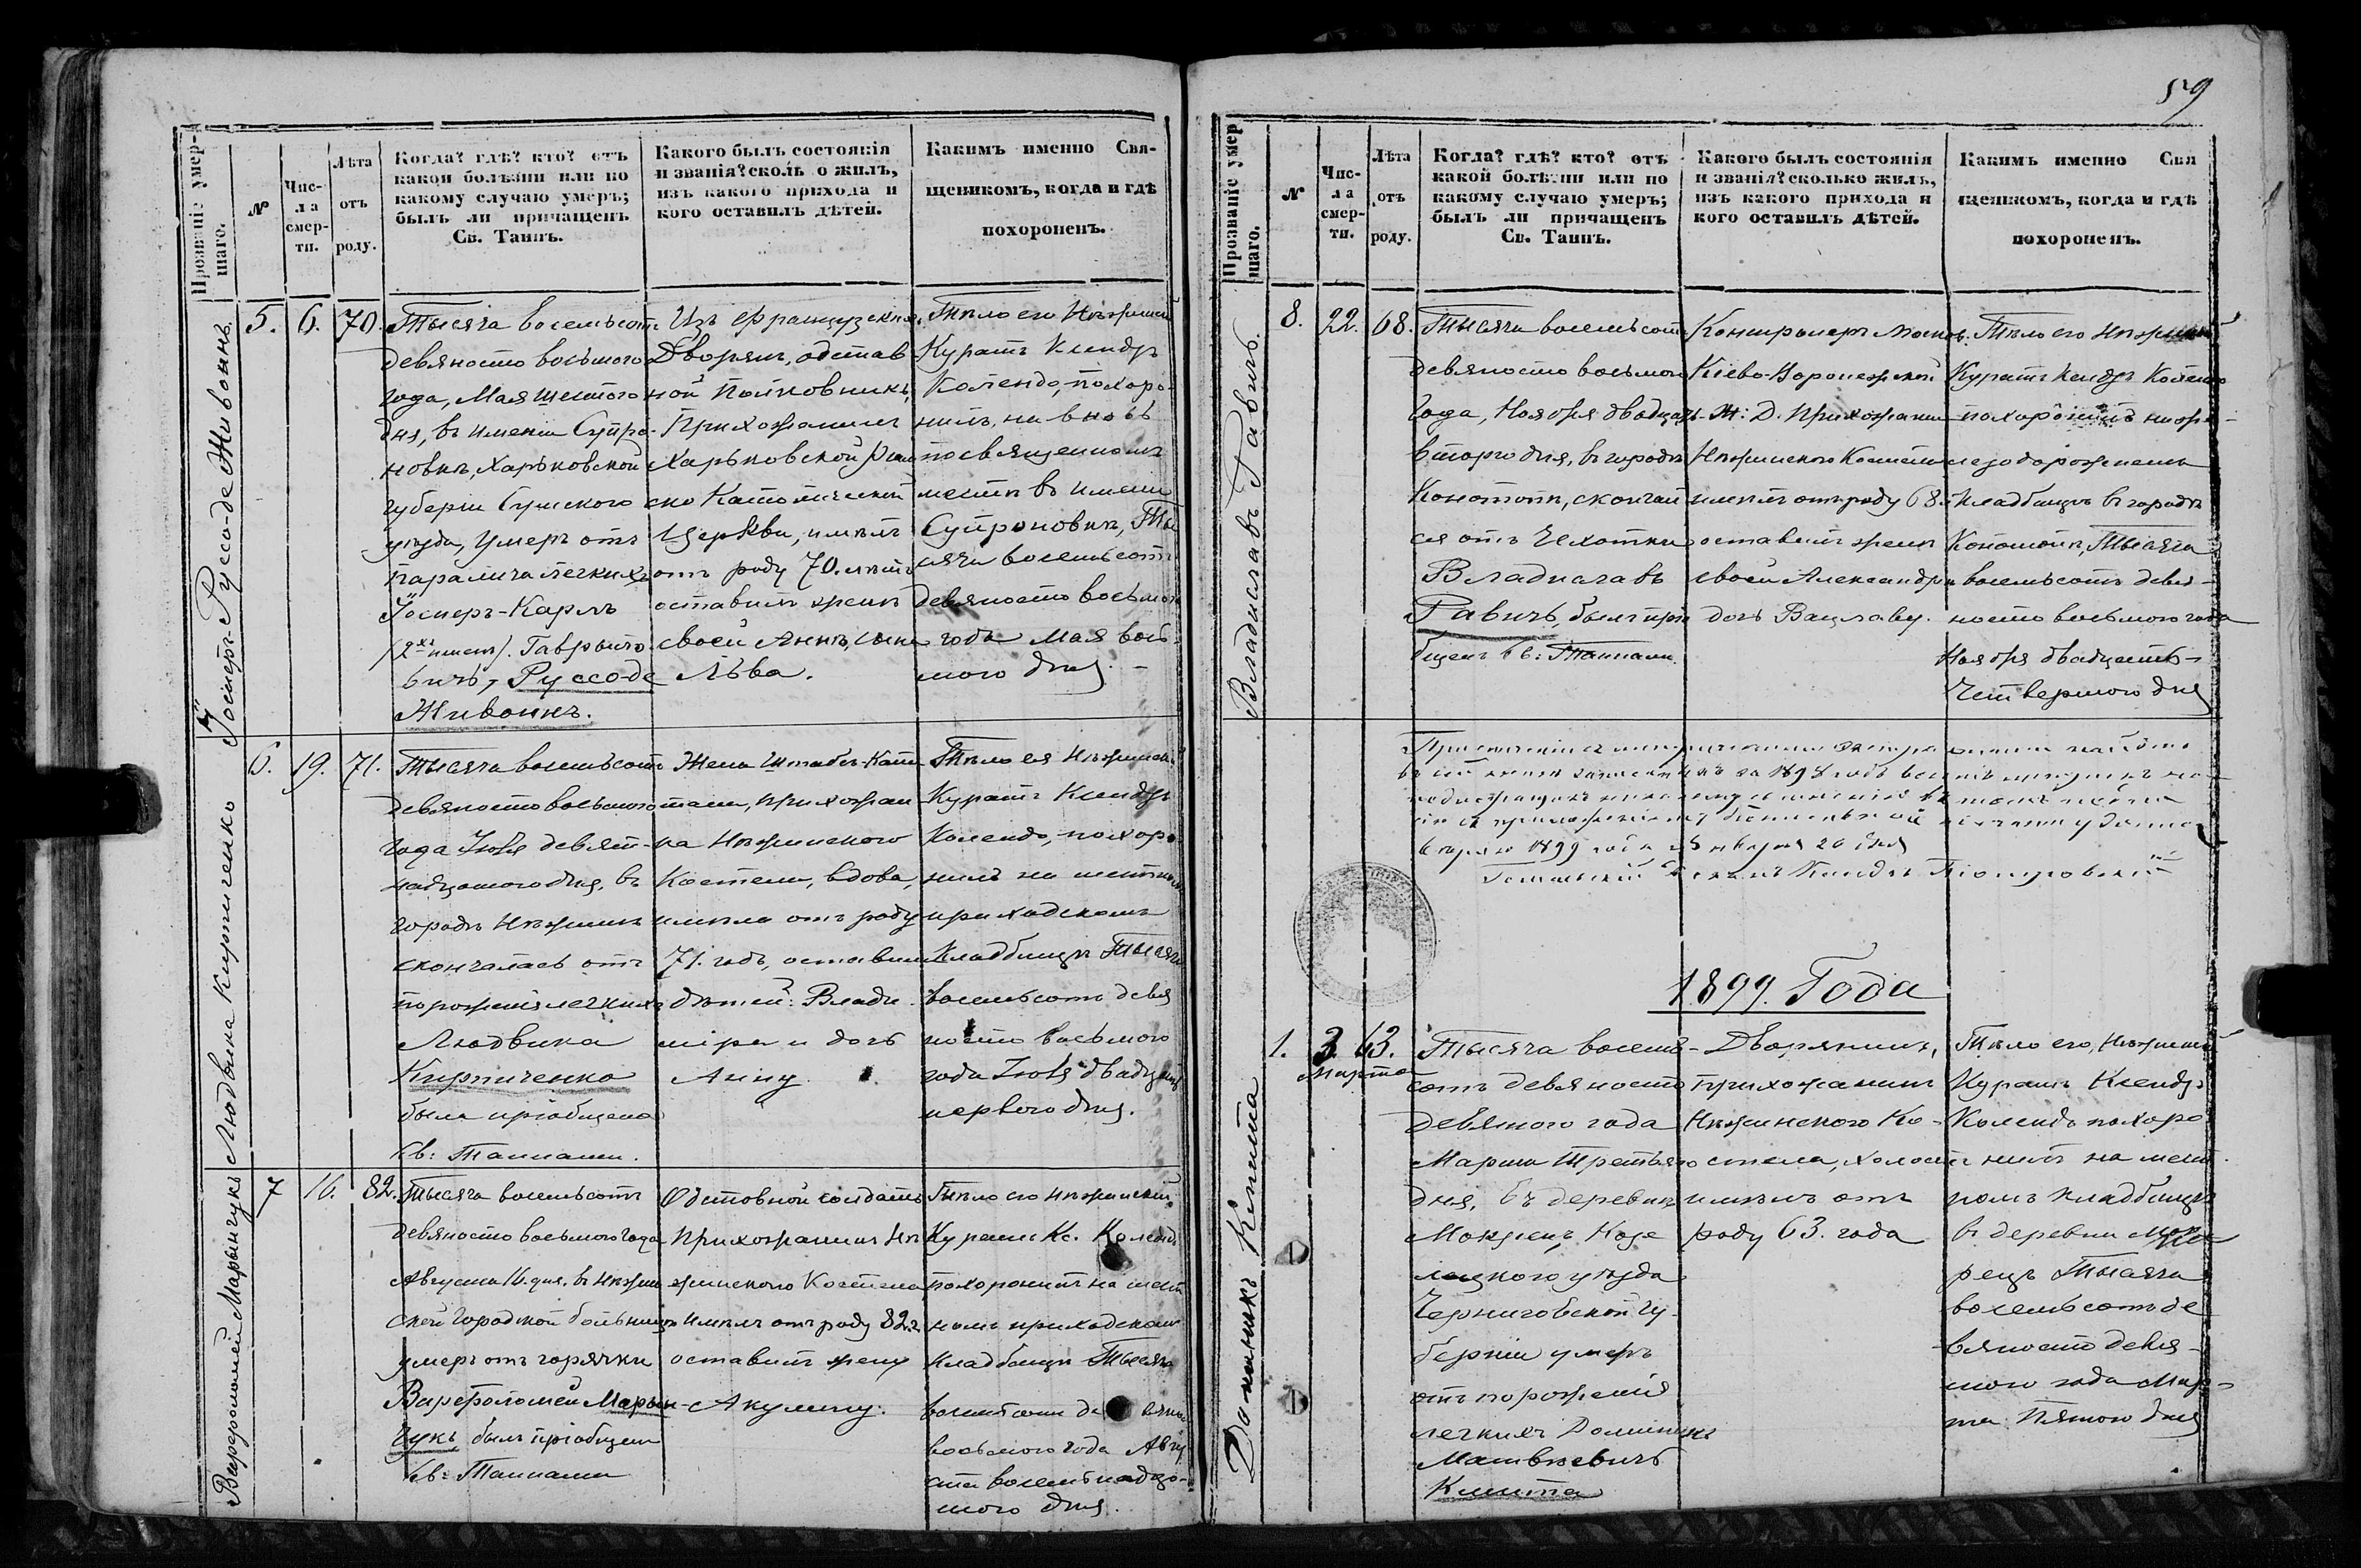 59
Прозваніе умер-
шаго.
№
Чис-
ла
смер-
ти.
Лѣта
отъ
роду.
Когда? гдѣ? кто? отъ
какой болѣзни или по
какому случаю умеръ;
былъ ли причащенъ
Св. Таинъ.
Какого былъ состоянія
и званія? сколь о жилъ,
изъ какого прихода и
кого оставилъ дѣтей.
Какимъ именно Свя-
щеникомъ, когда и гдѣ
похороненъ.
Руссо-де Живоннъ
5.
6.
70.
Тысяча восемьсотъ
девяносто восьмого
года, Мая шестого
дня, въ имени Супро-
новкѣ, Харьковской
губерніи Сумского
уѣзда, умеръ отъ
паралича легкихъ
Іосифъ-Карлъ
(2хъ именъ). Гаврыло-
вичъ, Руссо-де
Живоннъ.
Изъ Французкихъ
Дворянъ, одстав
ной Полковникъ,
Прихожанинъ
Харьковской Рим
ско Католической
Церкви, имѣлъ
отъ роду 70. лѣтъ
оставилъ женѣ
своей Аннѣ, сына
Льва.
Тѣло его Нѣжинскій
Куратъ Ксендзъ
Календо, похоро-
нилъ, на вновь
посвященномъ
мѣстѣ въ имени
Супроновкѣ, Ты
сяча восемьсотъ
девяносто восьмого
года Мая вось-
мого дня. -
Людвика Кирпиченко
6.
19.
71.
Тысяча восемьсотъ
девяносто восьмого
года Іюля девят-
надцатого дня, въ
городѣ Нѣжинѣ
скончалась отъ
пороженія легкихъ
Людвика
Кирпиченко
была пріобщена
Св: Таинами.
Жена Штабсъ-Капи
тана, прихожан
ка Нѣжинского
Костела, вдова,
имѣла отъ роду
71. годъ, оставила
дѣтей: Влади
міра и дочь
Анну.
Тѣло ея Нѣжинскій
Куратъ Ксендзъ
Календо, похоро-
нилъ на мѣстномъ
приходскомъ
Кладбищѣ Тысяча
восемьсотъ девя
носто восьмого
года Іюля двадцать
первого дня.
Варфоломей Марынчукъ
7
16.
82.
Тысяча восемьсотъ
девяносто восьмого года
Августа 16. дня. въ Нѣжин
ской Городской больницѣ
умеръ отъ горячки
Варфоломей Марын-
чукъ, былъ пріобщенъ
Св: Таинами
Одставной солдатъ
Прихожанинъ Нѣ
жинского Костела
имѣлъ отъ роду 82. г.
оставилъ жену
Акулину.
Тѣло его Нѣжинскій
Куратъ Кс. Календо
похоронилъ на мѣст
номъ приходскомъ
кладбищѣ Тысяча
восемьсотъ девяносто
восьмого года Авгу
ста восемьнадца-
того дня.
Прозваніе умер
шаго.
№
Чис-
ла
смер-
ти.
Лѣта
отъ
роду.
Когда? гдѣ? кто? отъ
какой болѣзни или по
какому случаю умеръ;
былъ ли причащенъ
Св. Таинъ.
Какого былъ состоянія
и званія? сколько жилъ,
изъ какого прихода и
кого оставилъ дѣтей.
Какимъ именно Свя
щеникомъ, когда и гдѣ
похороненъ.
Владиславъ Равичъ.
8.
22.
68.
Тысяча восемьсотъ
девяносто восьмого
года, Ноября двадцать
второго дня, въ городѣ
Конотопѣ, скончал
ся отъ Чехотки
Владиславъ
Равичъ, былъ прі
бщенъ Св: Таинами.
Контролеръ Москов.
Кіево-Воронежской
Ж: Д. Прихожанинъ
Нѣжинского Костела
имѣлъ отъ роду 68.
оставилъ женѣ
своей Александрѣ
дочь Вацлаву.
Тѣло его Нѣжинскій
Куратъ Ксендзъ Календо
похоронилъ на же-
лезодорожномъ
кладбищѣ въ городѣ
Конотопѣ, Тысяча
восемьсотъ девя-
носто восьмого года
Ноября двадцать-
четвертого дня
1899 года Января 20 дня
1899. Года
Доминикъ Кмита
1.
3.
Марта
63.
Тысяча восемь-
сотъ девяносто
девятого года
Марта Третьяго
дня, въ деревнѣ
Мокрецъ, Козе
лецкого уѣзда
Черниговской Гу-
берніи умеръ
отъ пороженія
легкихъ Доминикъ
Матвѣевичъ
Кмита
Дворянинъ,
прихожанинъ
Нѣжинского Ко-
стела, холостъ
имѣлъ отъ
роду 63. года
Тѣло его, Нѣжинскій
Куратъ Ксендзъ
Календо похоро
нилъ на мѣст.
номъ кладбищѣ
въ деревни Мок
рецъ Тысяча
восемьсотъ де
вяносто девя-
того года Мар-
та Пятого дня